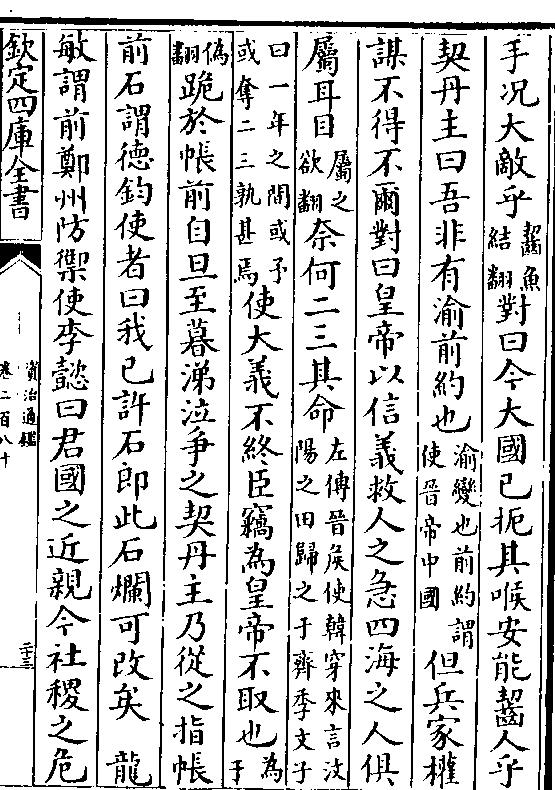 手况大敵乎齧魚結翻對曰今大國已扼其喉安能齧人乎
契丹主曰吾非有渝前約也渝變也前約謂使晉帝中國但兵家權
謀不得不爾對曰皇帝以信義救人之急四海之人俱
屬耳目屬之欲翻奈何二三其命左傳晉侯使韓穿來言汶陽之田歸之于齊季文子
曰一年之間或予或奪二三孰甚焉使大義不終臣竊為皇帝不取也為于
偽翻跪於帳前自旦至暮涕泣争之契丹主乃從之指帳
前石謂德鈞使者曰我已許石郎此石爛可改矣　龍
敏謂前鄭州防禦使李懿曰君國之近親今社稷之危
欽定四庫全書
資治通鑑
卷二百八十
二十三